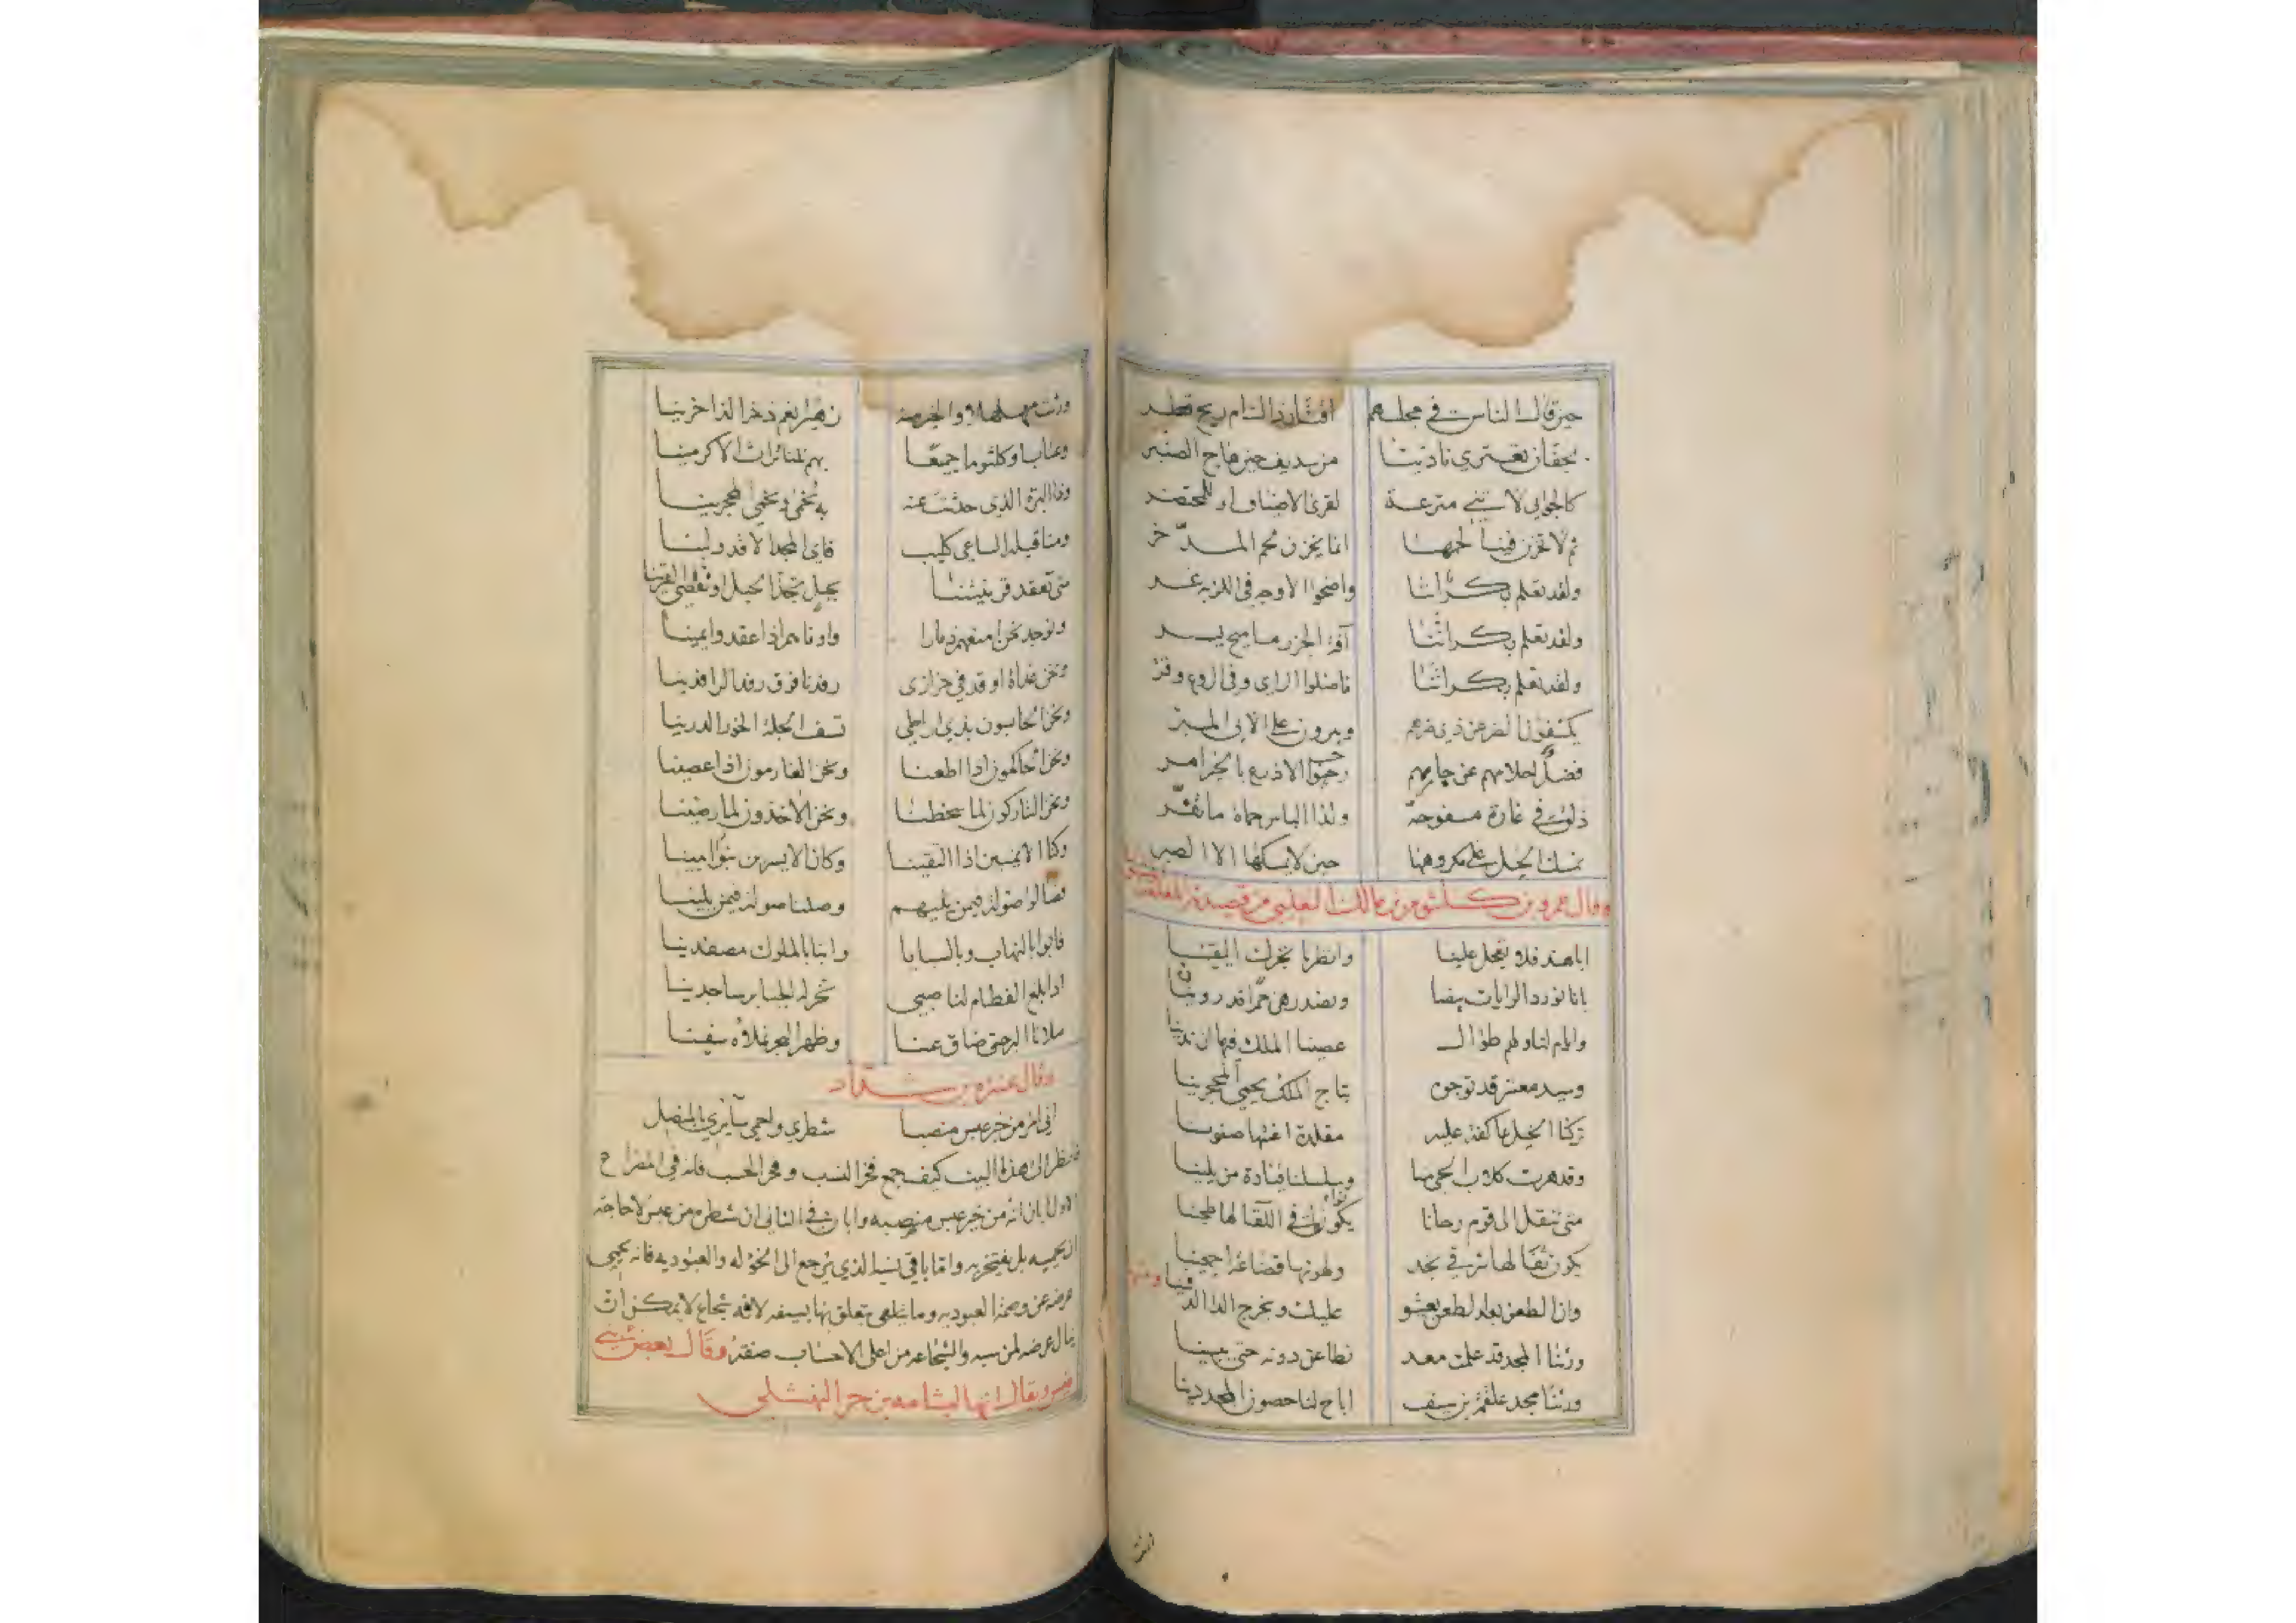 حين قال الناس في مجلسهم اقتار ذا الشام ريح قطر
بجفان تعتري نادينا من سديف حين هاج الصنبر
كالجوابي لا تني مترعة لقرى الاضياف او للمحتضر
ثم لا تخزن فينا لحمها انما يخزن لحم المدّخر
ولقد تعلم بكر اننا واضحوا الاوجه في اللزبة غر
ولقد تعلم بكر اننا آفة الجزر مساميح يسر
ولقد تعلم بكر اننا فاضلوا الراي وفي الروع وقر
يكشفون الضر عن ذي ضرهم ويبرون على الابي المبر
فضل احلامهم عن جارهم رحب الاذرع بالخير امر
ذلق في غارة مسفوحة ولذا الباس حماة ما تفر
نمسك الخيل على مكروهها حين لا يمسكها الا الصبر
وقال عمرو بن كلثوم بن مالك التغلبي من قصيدته المعلقة
ابا هند فلا تعجل علينا وانظرنا نخبرك اليقينا
بانا نورد الرايات بيضا ونصدرهن حمرا قد روينا
وايام لنا ولهم طوال عصينا الملك فيها ان ندينا
وسيد معشر قد توجوه بتاج الملك يحمي المحجرينا
تركنا الخيل عاكفة عليه مقلدة اعنتها صفونا
وقد هرت كلاب الحي منا وسلسلنا قتادة من يلينا
متى ننقل الى قوم رحانا يكونوا في اللقا لها طحينا
يكون ثفالها شرقي نجد ولهوتها قضاعة اجمعينا
وان الطعن بعد الطعن يعشو عليك ويخرج الدا الدفينا ومنها
ورثنا المجد قد علمت معد نطاعن دونه حتى يبينا
ورثنا مجد علقمة بن سيف اباح لنا حصون المجد دينا
ورثت
ورثت مهلهلا والخير منه زهيرا نعم ذخر الذاخرينا
وعتابا وكلثوما جميعا بهم نلنا تراث الاكرمينا
وذا البرة الذي حدثت عنه به نحمى ونحمي المحجرينا
ومنا قبله الساعي كليب فاي المجد الا قد ولينا
متى تعقد قرينتنا بحبل تجذ الحبل او تقص القرينا
ونوجد نحن امنعهم ذمارا واوفاهم اذا عقدوا يمينا
ونحن غداة اوقد في خزازى رفدنا فوق رفد الرافدينا
ونحن الحابسون بذي اراطي تسف الجلة الخور الدرينا
ونحن الحاكمون اذا اطعنا ونحن الغارمون اذا عصينا
ونحن التاركون لما سخطنا ونحن الاخذون لما رضينا
وكنا الايمنين اذا التقينا وكان الايسرين بنو ابينا
فصالوا صولة فيمن يليهم وصلنا صولة فيمن يلينا
فابوا بالنهاب وبالسبايا وابنا بالملوك مصفدينا
اذا بلغ الفطام لنا صبي تخر له الجبابر ساجدينا
ملانا البر حتى ضاق عنا وظهر البحر نملاه سفينا
وقال عنتره بن شداد
اني امرؤ من خير عبس منصبا شطري واحمي سآئري بالمنصل
فانظر الى هذا البيت كيف جمع فخر النسب وفخر الحسب فانه في المصراع
الاول ابان انه من خير عبس منصبه وابان في الثاني ان شطره من عبس لا حاجة
ان يحميه بل يفتخر به واما باقي نسبه الذي يرجع الى الخوله والعبوديه فانه يحمي
عرضه عن وصمة العبوديه وما يتعلق بها بسيفه لانه شجاع لا يمكن ان
ينال عرضه لمن سبه والشجاعه من اعلى الاحساب وقال بعض بني
قيس ويقال انها لبشامه بن حزن النهشلي